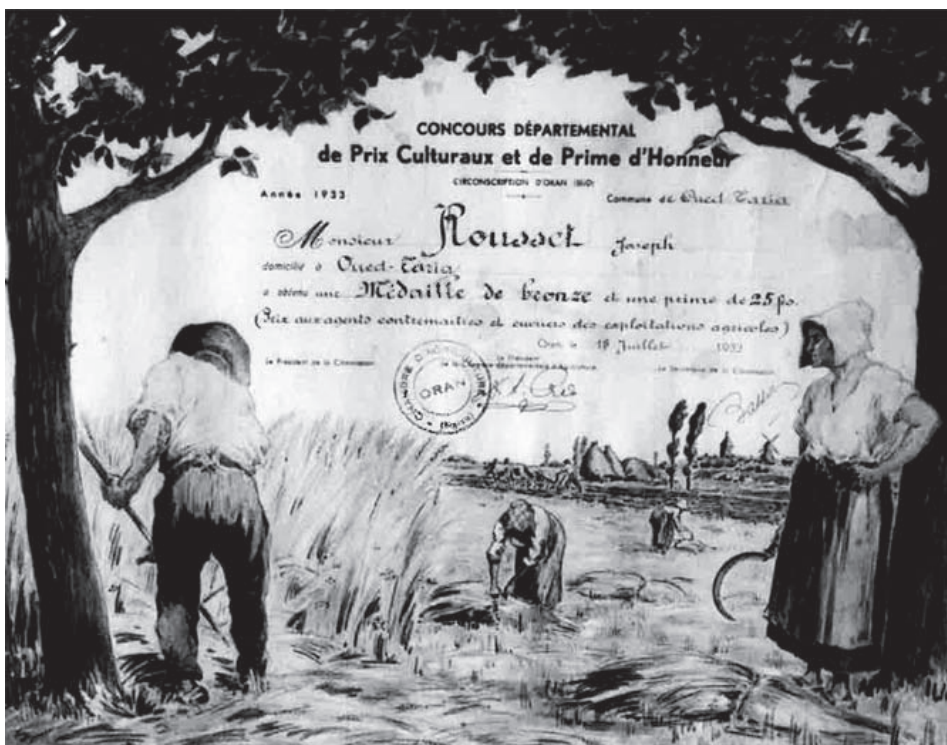 CONCOURS DÉPARTEMENTAL
de Prix Culturaux et de Prime d'Honneur
CIRCONSCRIPTION D'ORAN
Année 1933 Commune de Oued-Taria
Monsieur Rousset Joseph
domicilié à Oued-Taria
a obtenu une Médaille de bronze et une prime de 25 frs.
(Prix aux agents contremaîtres et ouvriers des exploitations agricoles)
Oran, le 18 Juillet 1933
Le Président de la Commission Le Président Le Secrétaire de la Commission
de la Chambre départementale d'Agriculture
CHAMBRE D'AGRICULTURE
ORAN